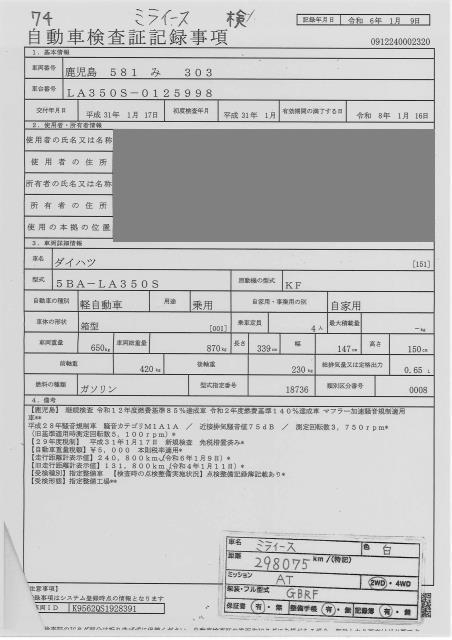 74 ミライース 検
記録年月日 令和 6年 1月 9日
自動車検査証記録事項 0912240002320
1．基本情報
車両番号 鹿児島 581 み 303
車台番号 LA350S－0125998
交付年月日 平成 31年 1月 17日 初度検査年月 平成 31年 1月 有効期間の満了する日 令和 8年 1月 16日
2．使用者・所有者情報
使用者の氏名又は名称
使用者の住所
所有者の氏名又は名称
所有者の住所
使用の本拠の位置
3．車両詳細情報
車名 ダイハツ [151]
型式 5BA－LA350S 原動機の型式 KF
自動車の種別 軽自動車 用途 乗用 自家用・事業用の別 自家用
車体の形状 箱型 [001] 乗車定員 4人 最大積載量 －kg
車両重量 650kg 車両総重量 870kg 長さ 339cm 幅 147cm 高さ 150cm
前軸重 420kg 後軸重 230kg 総排気量又は定格出力 0.65 L
燃料の種類 ガソリン 型式指定番号 18736 類別区分番号 0008
4．備考
【鹿児島】 継続検査 令和12年度燃費基準85％達成車 令和2年度燃費基準140％達成車 マフラー加速騒音規制適用
車＊＊
平成28年騒音規制車 騒音カテゴリM1A1A ／ 近接排気騒音値75dB ／ 測定回転数3，750rpm＊
（旧基準適用時測定回転数5，100rpm）＊
【29年度税制】 平成31年1月17日 新規検査 免税措置済み＊
【自動車重量税額】￥5，000 本則税率適用＊
【走行距離計表示値】240，800km（令和6年1月9日）＊
【旧走行距離計表示値】131，800km（令和4年1月11日）＊
【受検種別】指定整備車 【検査時の点検整備実施状況】点検整備記録簿記載あり＊
【受検形態】指定整備工場＊＊
車名 ミライース 色 白
距離 298075 km/(特記)
ミッション AT 2WD・4WD
架装・フル型式 GBRF
保証書 有・無 整備手帳 有・無 記録簿 有・無
注意事項】
録事項はシステム登録時点の情報となります
車両ID K95620S1928391